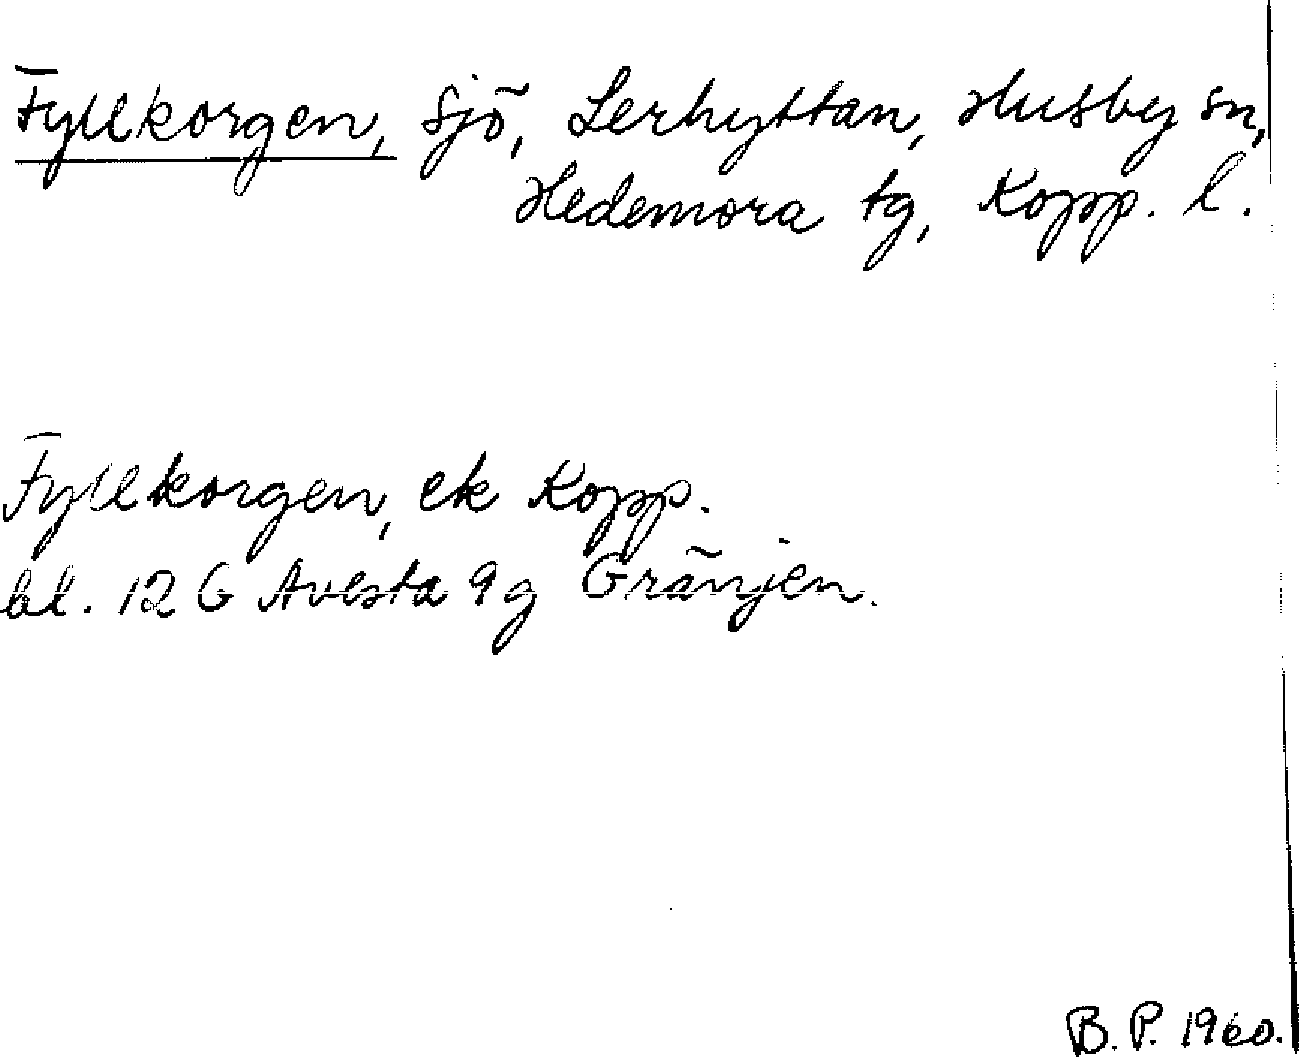 Fyllkorgen, sjö, Lerhyttan, Husby sn,
Hedemora tg, Kopp. l.
Fyllkorgen, ek Kopp.
bl. 12 G Avesta 9g Gränjen.
B. P. 1960.